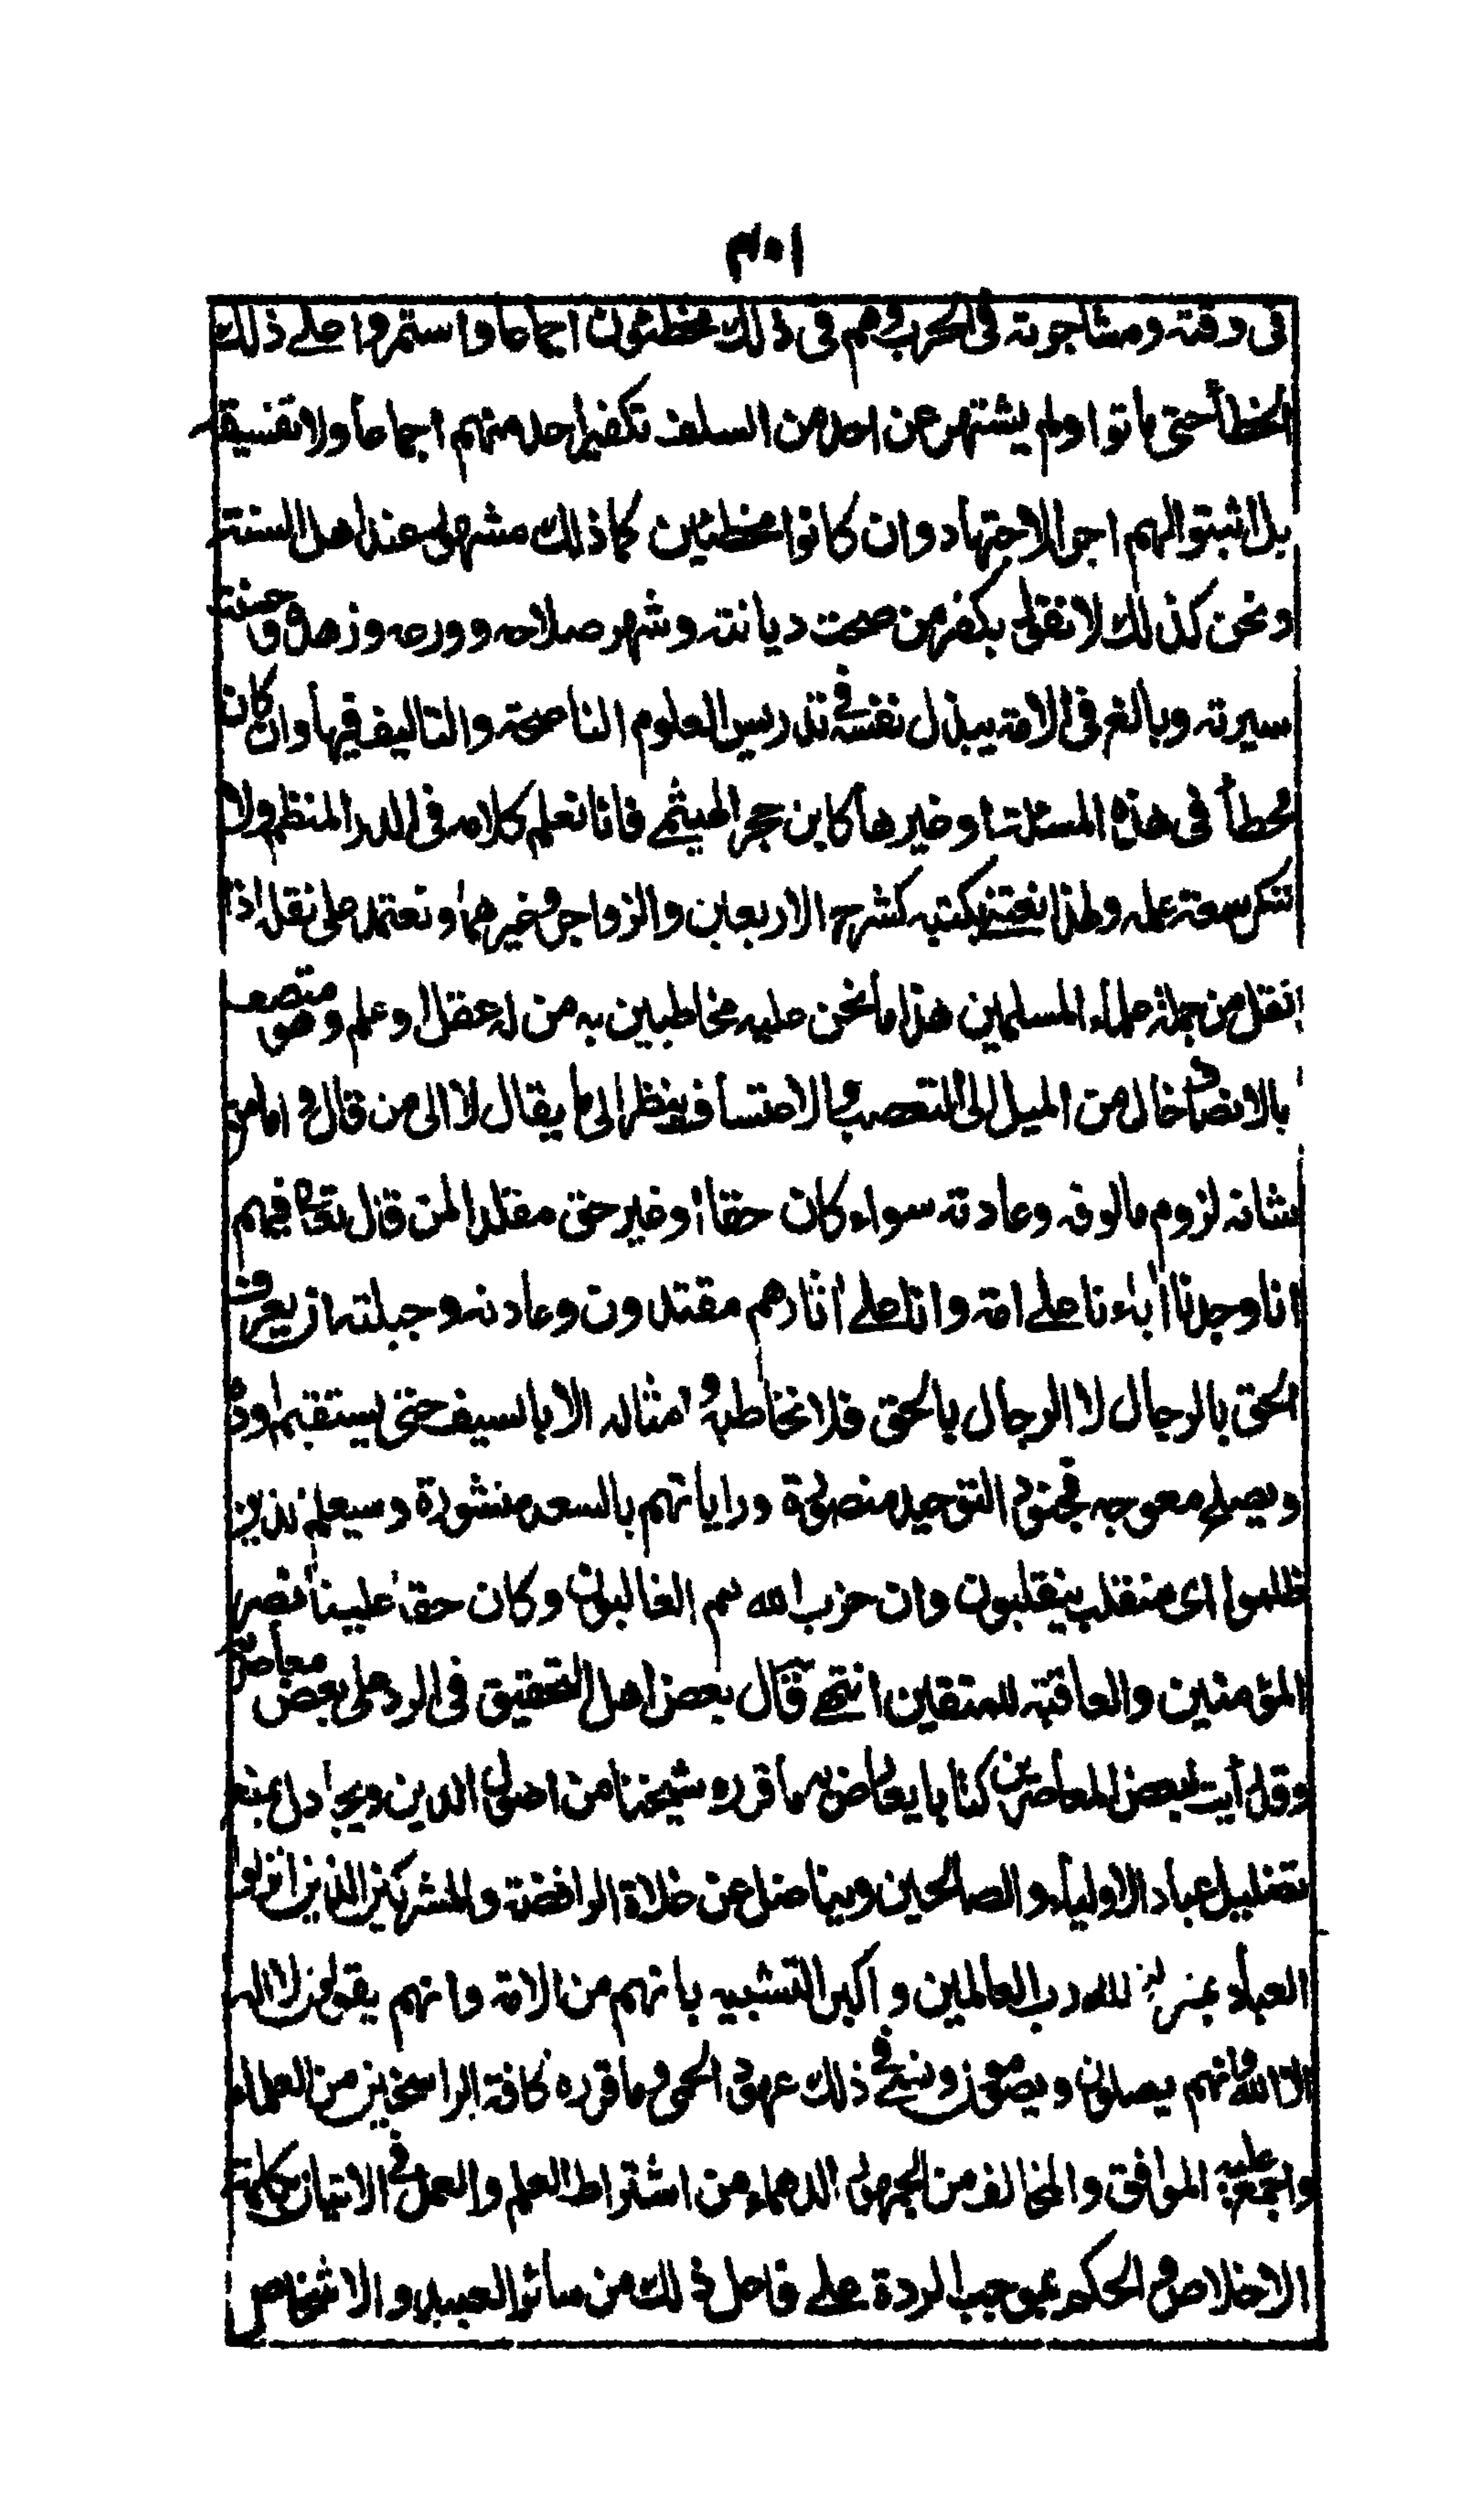 ٣٠١
فى وقته ومشاجرته فى الحرب وهم فى ذلك مخطئون اجماعا واستمروا على ذلك
الخطأ حتى ماتوا ولم يشتهر عن احد من السلف تكفير احد منهم اجماعا ولا تفسيقه
بل اثبتوا لهم اجر الاجتهاد وان كانوا مخطئين كما ذلك مشهور عند اهل السنة
ونحن كذلك لا نقول بكفر من صحت ديانته وشهر صلاحه وورعه وزهده وحسنت
سيرته وبالغ فى الامة ببذل نفسه فى تدريس العلوم النافعة والتاليف فيها وان كان
مخطأ فى هذه المسئلة او غيرها كابن حجر الهيثمى فانا نعلم كلامه فى الدر المنظم ولا
ننكر سعة علمه ولهذا نعتنى بكتبه كشرح الاربعين والزواجر وغيرهما ونعتمد على نقله اذا
نقل من جملة علماء المسلمين هذا ما نحن عليه مخاطبين به من له عقل او علم وهو متصف
بالانصاف خال من الميل الى التعصب والاعتساف ينظر الى ما يقال لا الى من قال واما من
شانه لزوم مالوفه وعادته سواء كان حقا او غير حق مقلدا لمن قال تعالى فيهم
انا وجدنا آباءنا على امة وانا على اثارهم مقتدون وعادته وجبلته ان يعرف
الحق بالرجال لا الرجال بالحق فلا نخاطبه وامثاله الا بالسيف حتى يستقيم اوده
ويصلح معوجه فجنود التوحيد منصورة وراياتهم بالسعد منشورة وسيعلم الذين
ظلموا اى منقلب ينقلبون وان حزب الله هم الغالبون وكان حقا علينا نصر
المؤمنين والعاقبة للمتقين انتهى وقال بعض اهل التحقيق فى الرد على بعض معاصريه
وقد رأيت لبعض المعاصرين كتابا يعارض به ما قرره شيخنا من اصول الدين ويجادل بمنع
تضليل عباد الاولياء والصالحين ويناضل عن غلاة الرافضة والمشركين الذين انزلوا
العباد بمنزلة الله رب العالمين واكبر التشبيه بانهم من الامة وانهم يقولون لا اله
الا الله وانهم يصلون ويصومون ونسى فى ذلك عهود الحمى وما قرره كافة الراسخين من العلماء
واجمع عليه الموافق والمخالف من الجمهور والدهماء من اشتراط العلم والعمل فى الاتيان بكلمة
الاخلاص والحكم بموجب الردة على فاعل ذلك من سائر العبيد والاشخاص